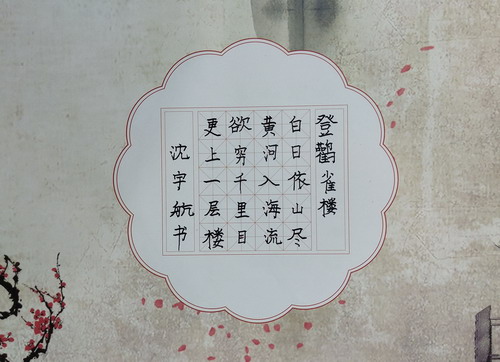 登鹳雀楼
白日依山尽
黄河入海流
欲穷千里目
更上一层楼
沈宇航书